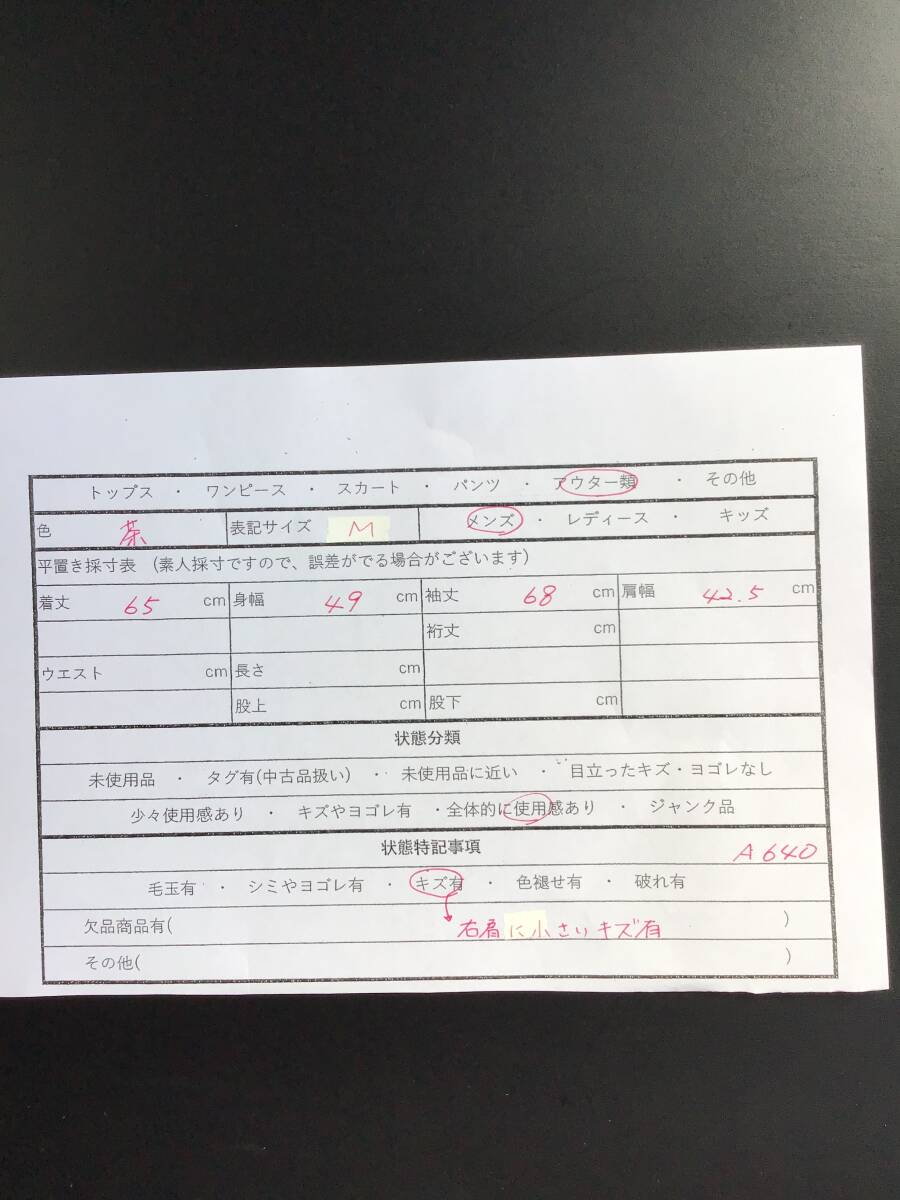 トップス ・ ワンピース ・ スカート ・ パンツ ・ アウター類 ・ その他
色 茶 表記サイズ M メンズ ・ レディース ・ キッズ
平置き採寸表 (素人採寸ですので、誤差がでる場合がございます)
着丈 65 cm 身幅 49 cm 袖丈 68 cm 肩幅 42.5 cm
裄丈 cm
ウエスト cm 長さ cm
股上 cm 股下 cm
状態分類
未使用品 ・ タグ有(中古品扱い) ・ 未使用品に近い ・ 目立ったキズ・ヨゴレなし
少々使用感あり ・ キズやヨゴレ有 ・全体的に使用感あり ・ ジャンク品
状態特記事項 A640
毛玉有 ・ シミやヨゴレ有 ・ キズ有 ・ 色褪せ有 ・ 破れ有
欠品商品有( 右肩に小さいキズ有 )
その他( )